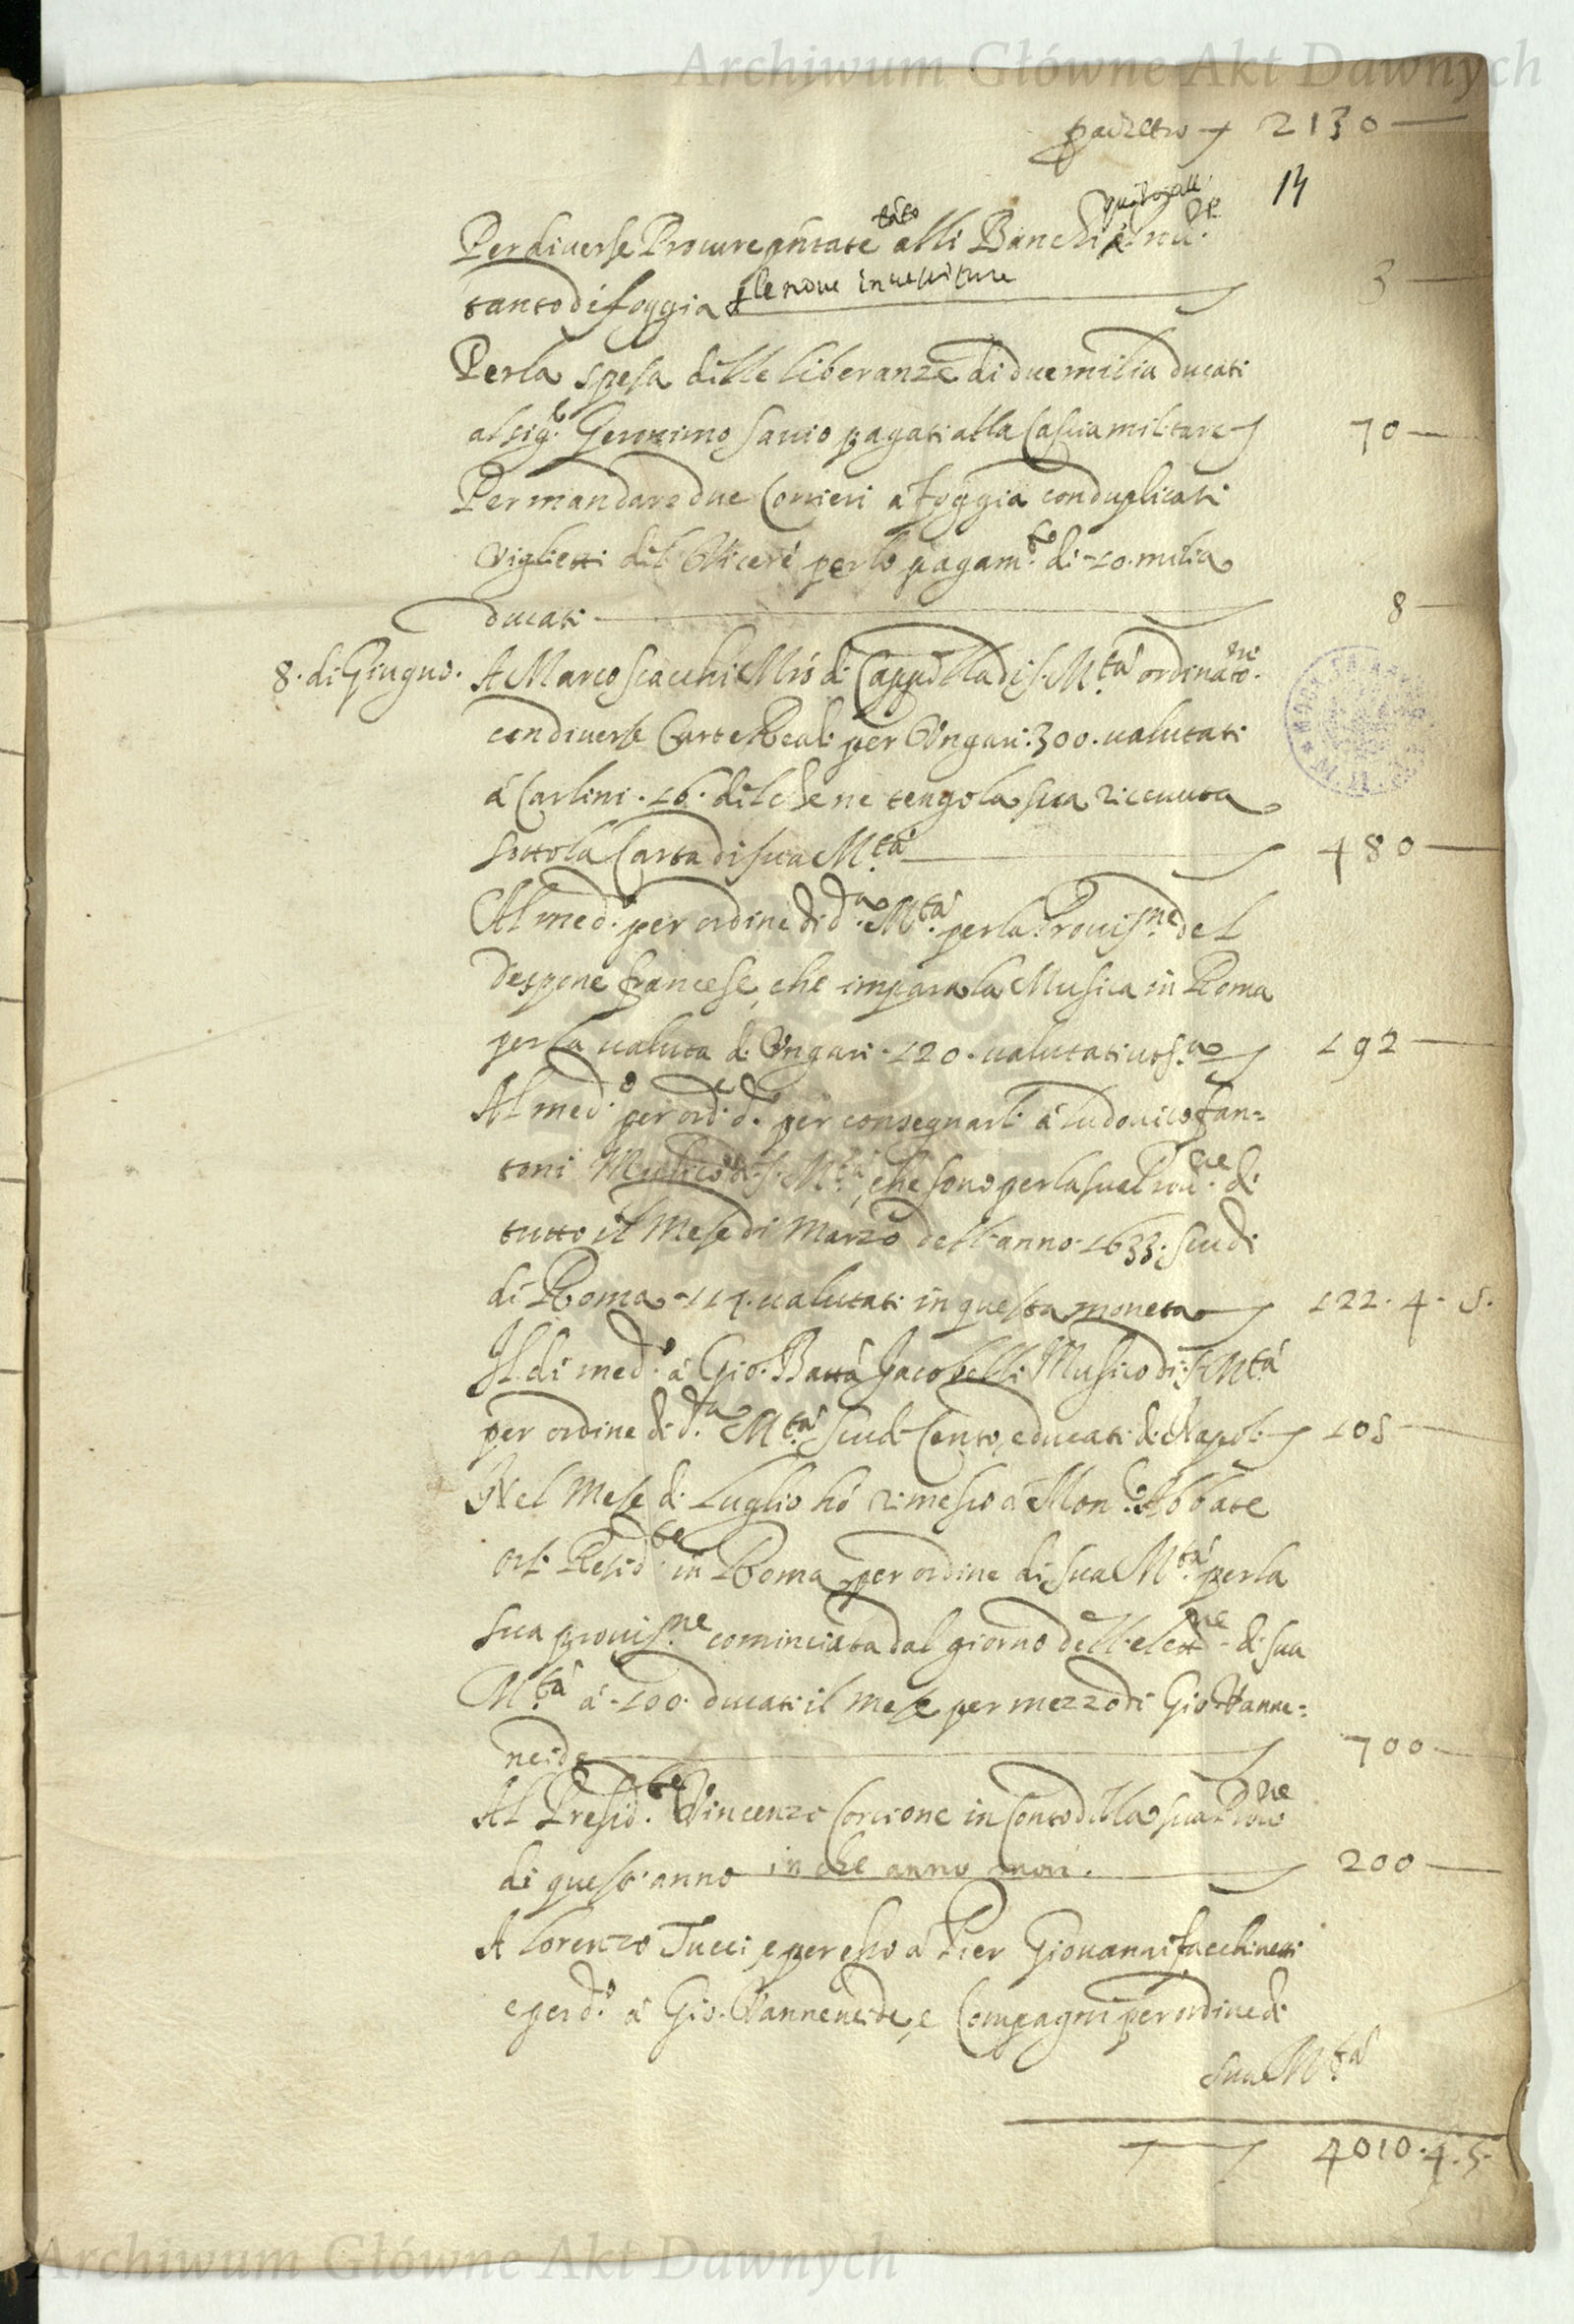 Archiwum Główne Akt Dawnych
p adietro 2130
14
qui
Per diverse Procure pñtate tãto alli Banchi
tanto di foggia p le nove investiture 3
Per la spesa delle liberanze di due milia ducati
al sig.r Geronimo Savio pagati alla Cassa militare 70
Per mandare due Corrieri a foggia con duplicati
Viglietti del Viceré per lo pagam.to di 10. milia
ducati 8
8. di Giugno. A Marco Scacchi Mro di Cappella di S. M.tà ordinato.ne
con diverse Carte Reali per Ungari. 300. valutati
à Carlini. 16. del che ne tengo la sua ricevuta
sotto la Carta di sua M.tà 480
Al med.o per ordine di d.a M.tà per la Provis.ne del
Despone francese, che impara la Musica in Roma
per la valuta di Ungari. 120. valutati ut s.a 192
Al med.o per ord.e d.o per consegnarli à Ludovico fan=
toni Musico di S. M.tà, che sono per la sua Prov.ne di
tutto il Mese di Marzo dell'anno. 1633. scudi
di Roma. 117. valutati in questa moneta 122. 4. 5.
Il di med.o à Gio. Batta Jacobelli Musico di S. M.tà
per ordine di d.a M.tà scudi Cento, e ducati di Napoli 105
Nel Mese di Luglio hò rimesso à Mon.r Abbate
Orsi Resid.te in Roma per ordine di Sua M.tà per la
sua provis.ne cominciata dal giorno dell'elett.ne di sua
M.tà à. 100. ducati il mese per mezzo di Gio Vanne=
neide 700
Al Presid.te Vincenzo Corcione in Conto della sua Prov.ne
di quest'anno in che anno morì. 200
A Lorenzo Tucci, e per esso à Pier Giovanni facchinetti
e per d.o à Gio. Vanneneide, e Compagni per ordine di
sua M.tà
4010. 4. 5.
Archiwum Główne Akt Dawnych